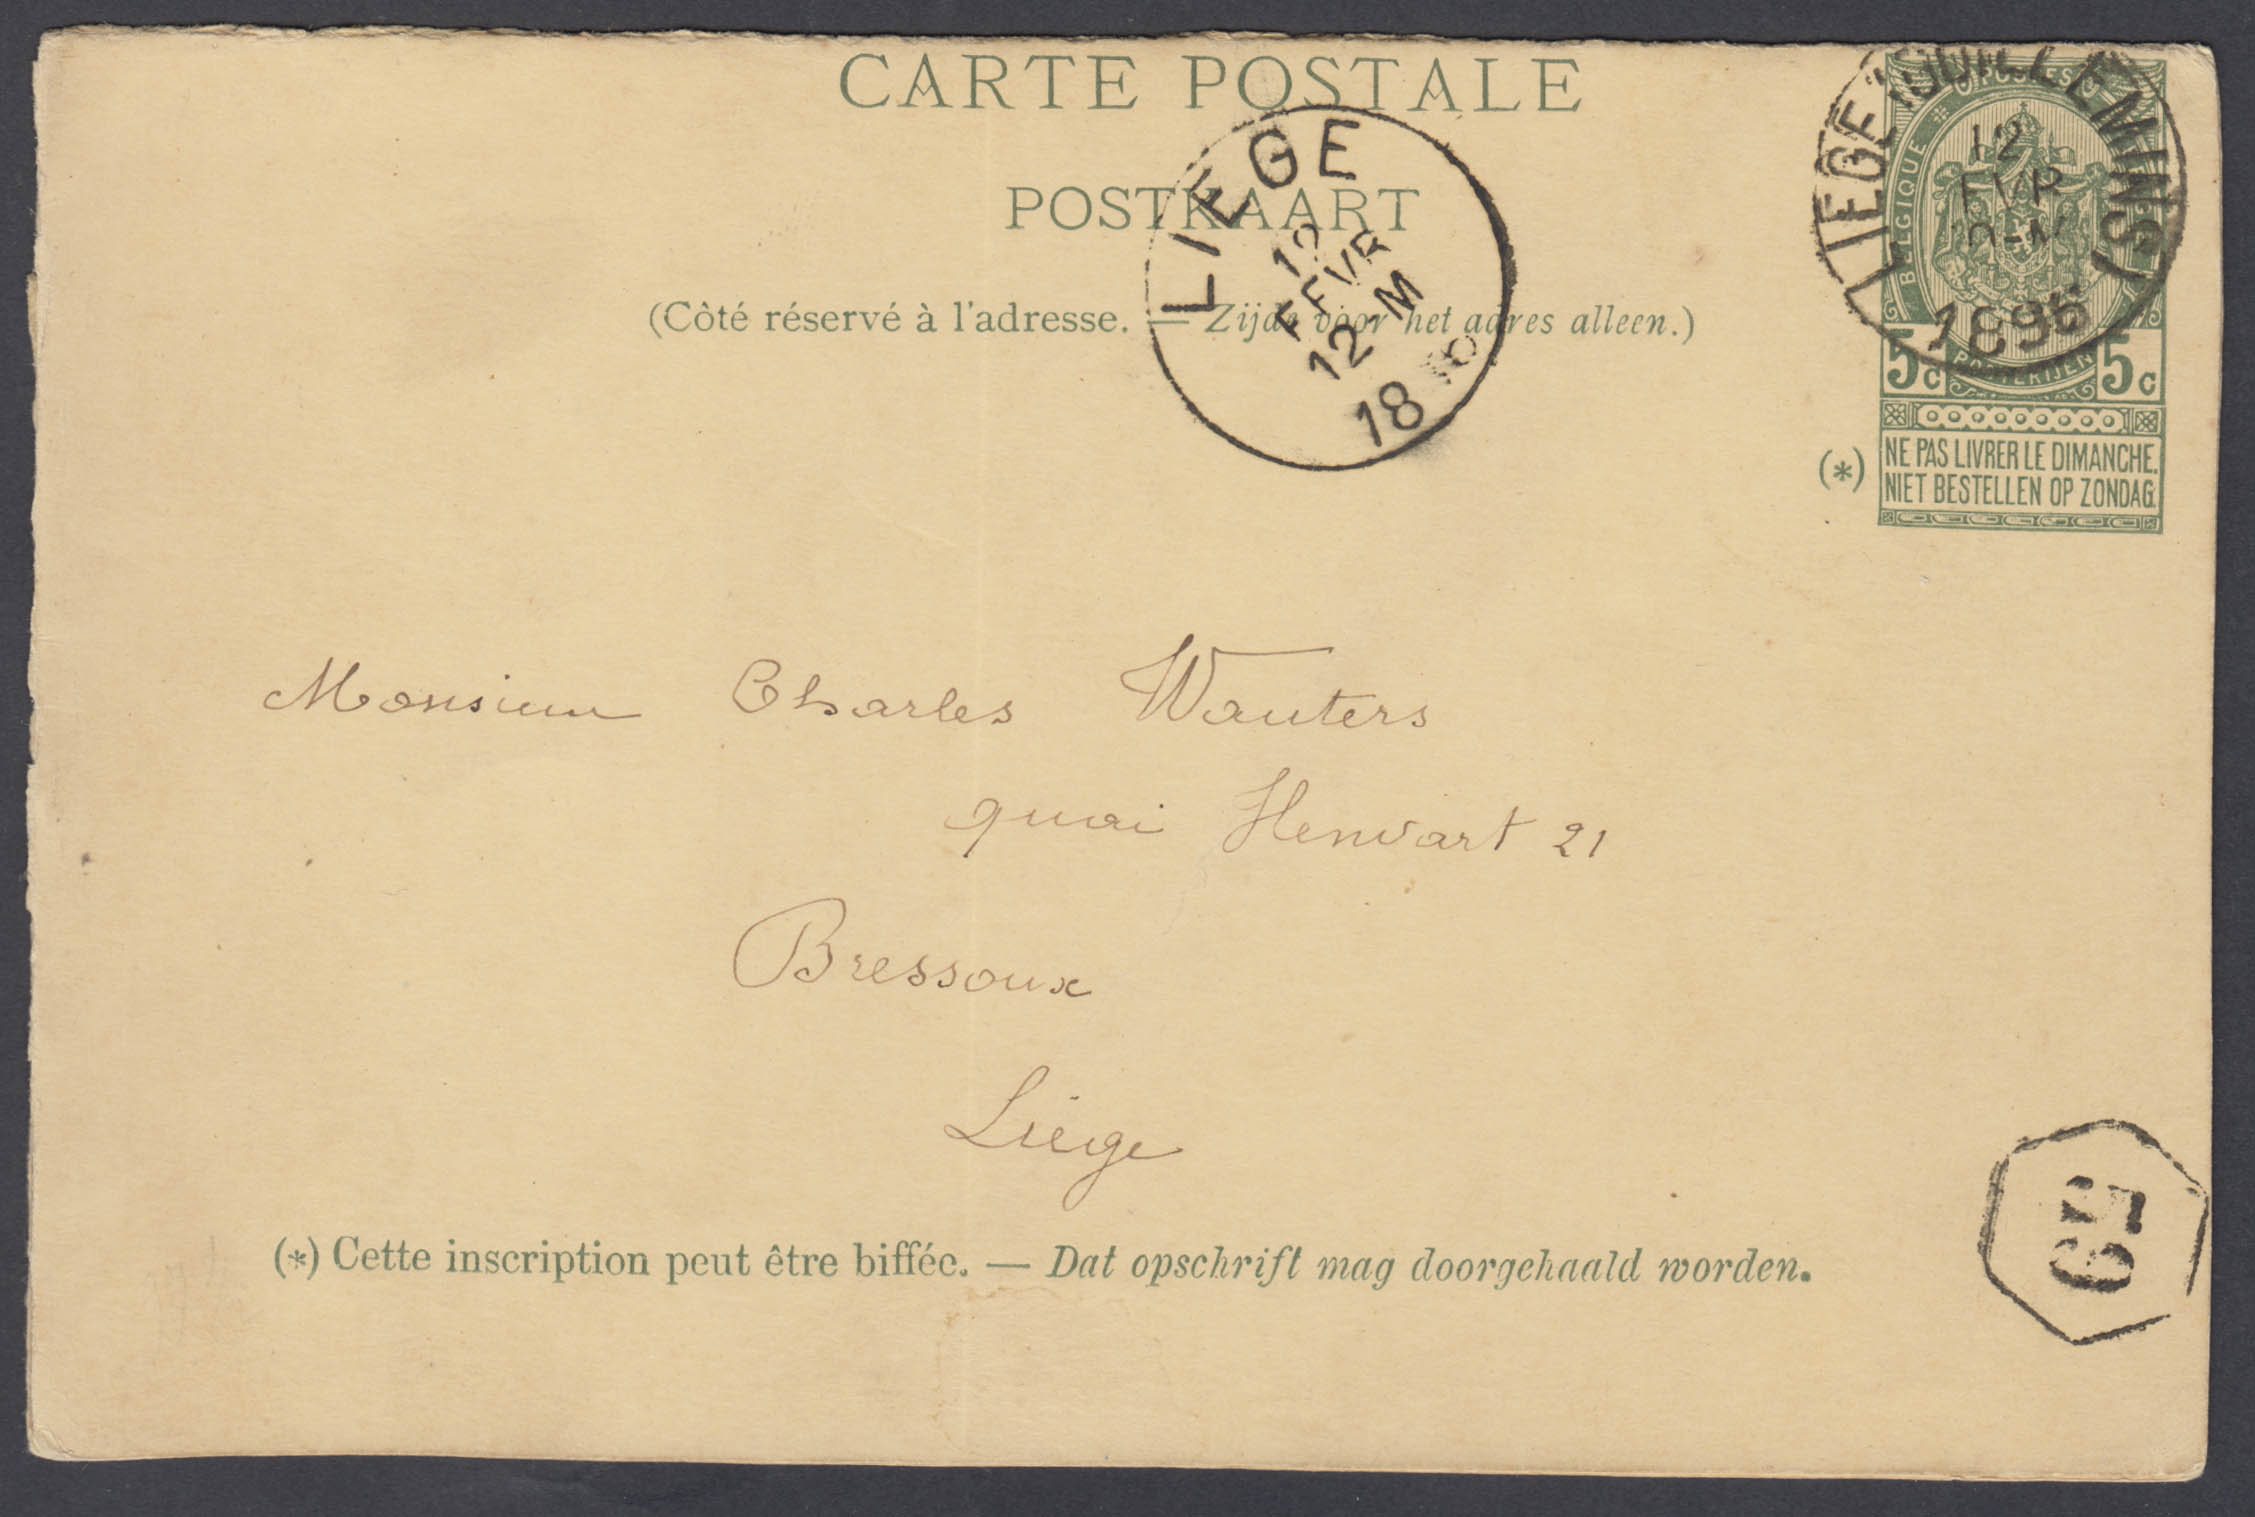 CARTE POSTALE
POSTKAART
(Côté réservé à l'adresse. — Zijde voor het adres alleen.)
LIEGE
12
FEVR
12-M
18
LIEGE (GUILLEMINS)
12
FEVR
1896
BELGIQUE
POSTERIJEN
5c 5c
(*) NE PAS LIVRER LE DIMANCHE.
NIET BESTELLEN OP ZONDAG.
Monsieur Charles Wauters
quai Henvart 21
Bressoux
Liège
(*) Cette inscription peut être biffée. — Dat opschrift mag doorgehaald worden.